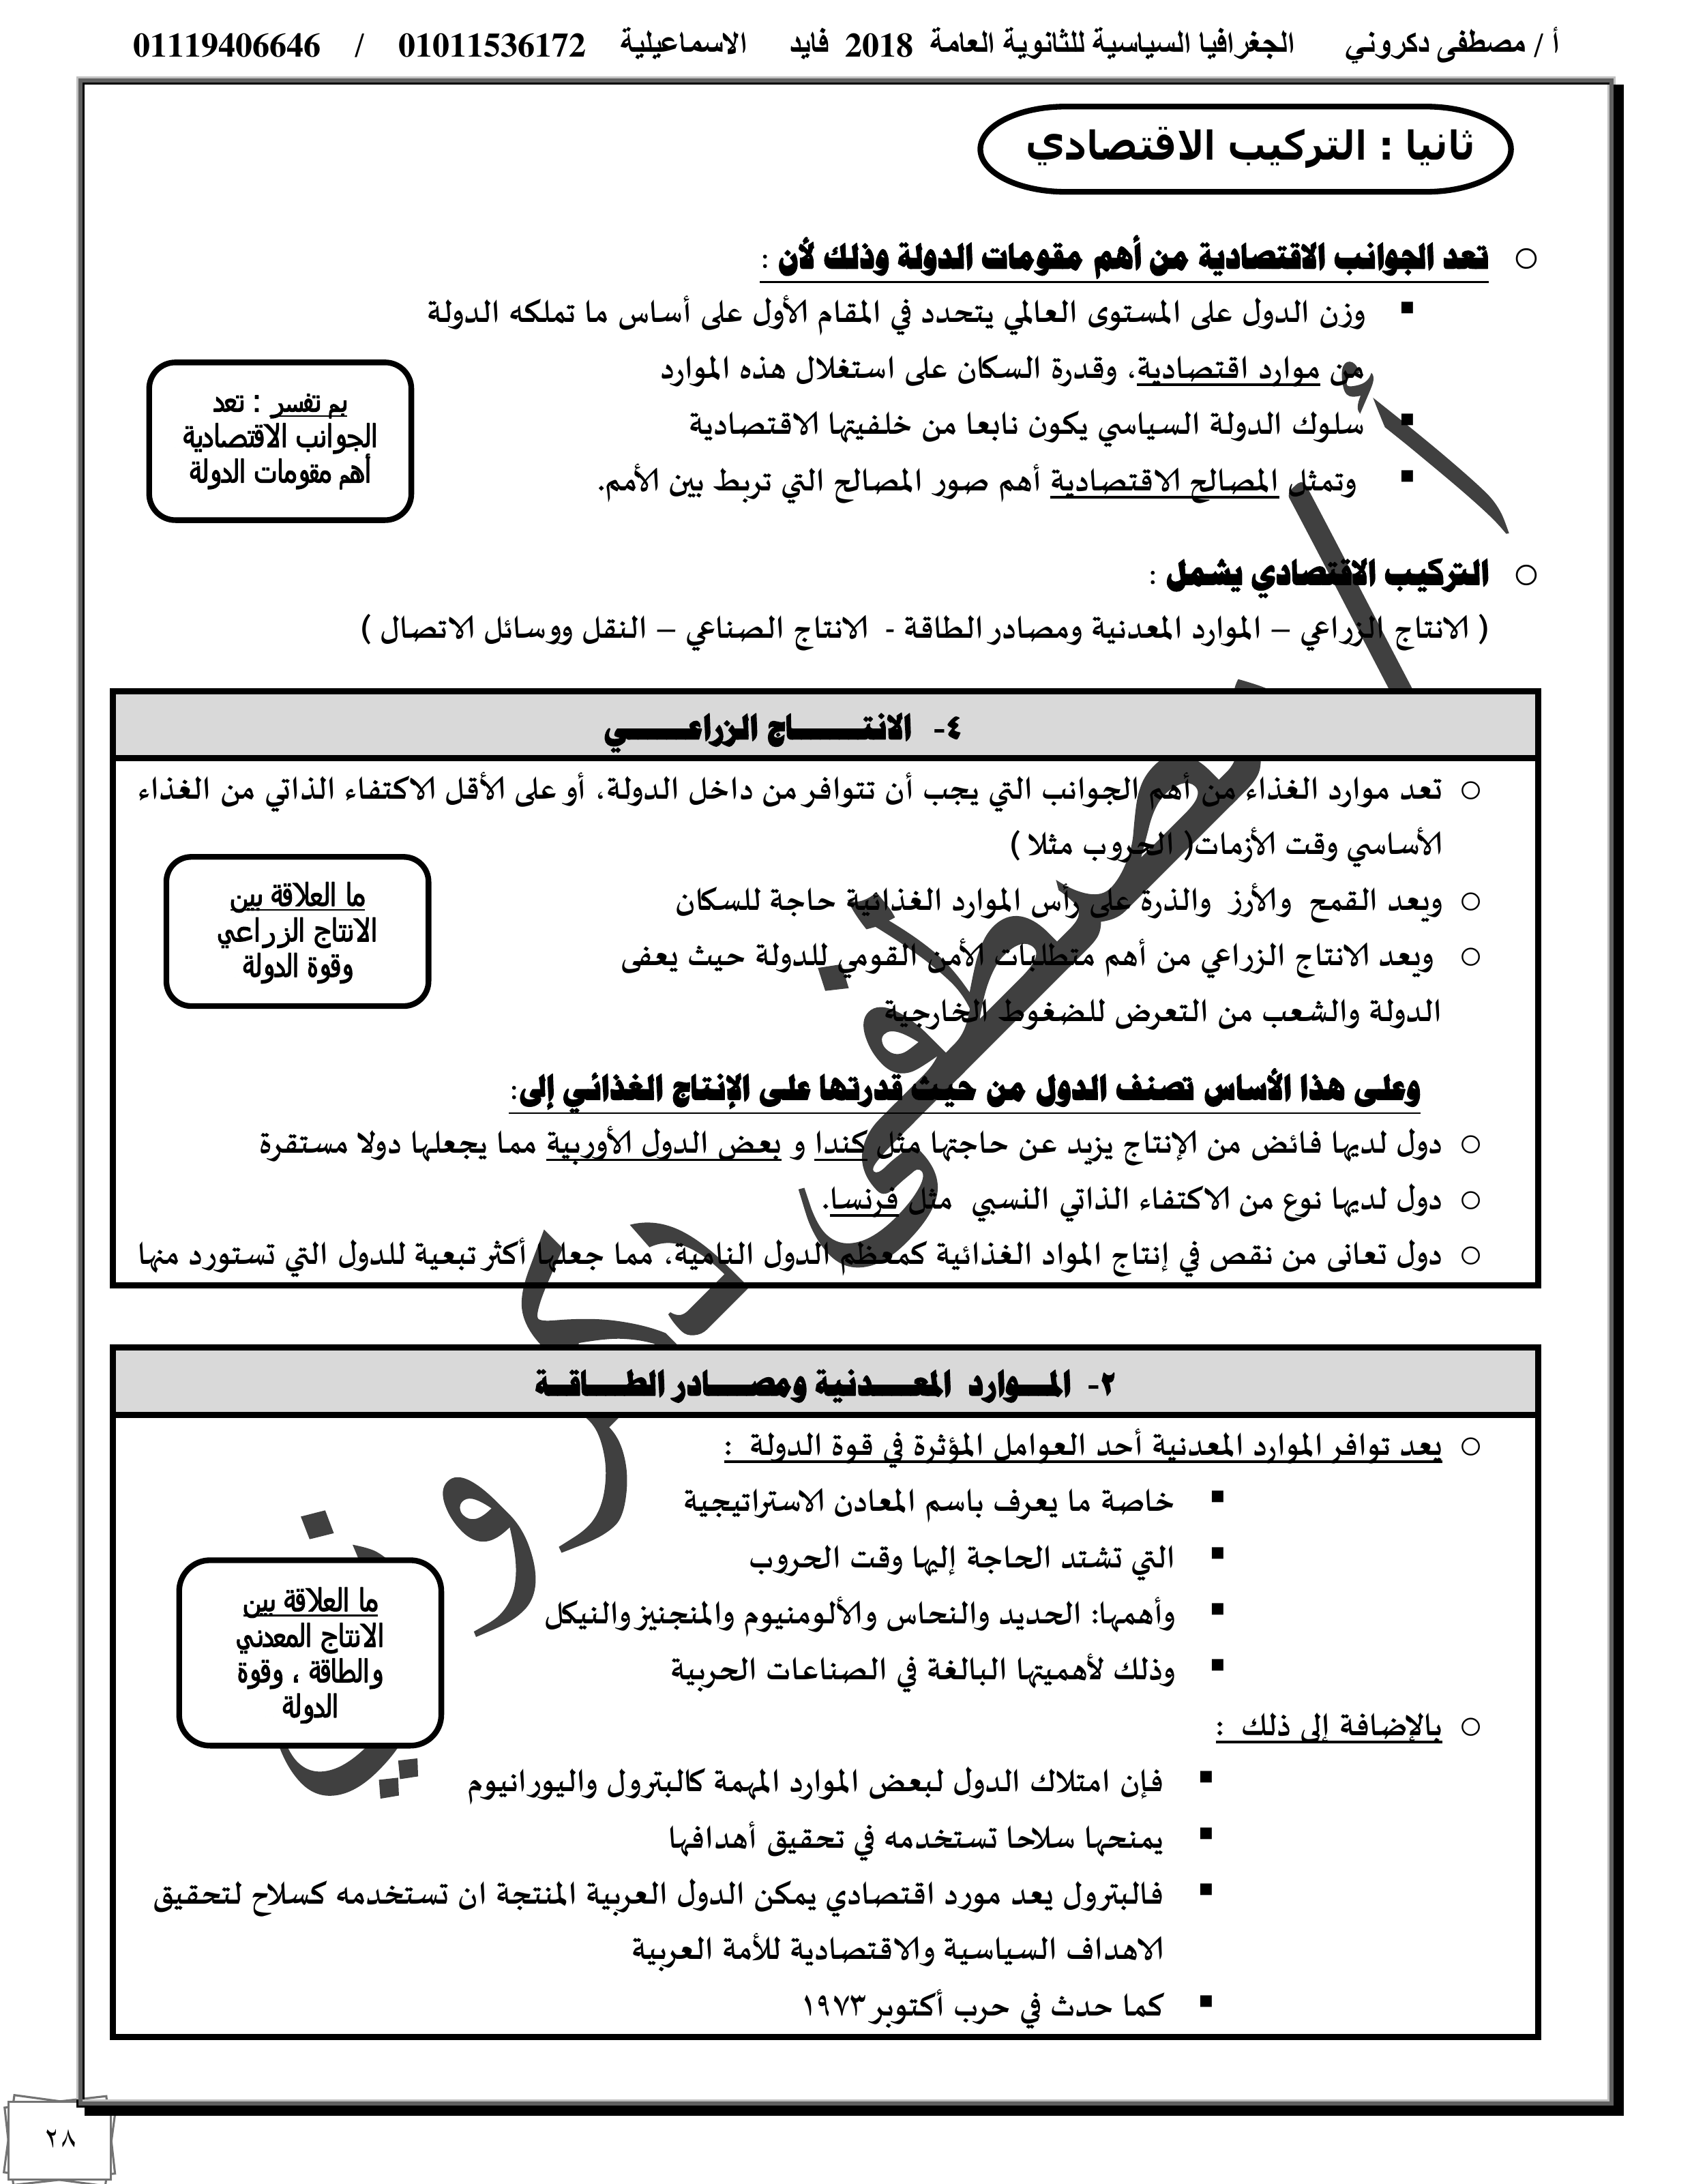 أ / مصطفى دكروني الجغرافيا السياسية للثانوية العامة 2018 فايد الاسماعيلية 01011536172 / 01119406646
ثانيا : التركيب الاقتصادي
تعد الجوانب الاقتصادية من أهم مقومات الدولة وذلك لأن :
وزن الدول على المستوى العالمي يتحدد في المقام الأول على أساس ما تملكه الدولة
من موارد اقتصادية، وقدرة السكان على استغلال هذه الموارد
سلوك الدولة السياسي يكون نابعا من خلفيتها الاقتصادية
وتمثل المصالح الاقتصادية أهم صور المصالح التي تربط بين الأمم.
بم تفسر : تعد
الجوانب الاقتصادية
أهم مقومات الدولة
التركيب الاقتصادي يشمل :
( الانتاج الزراعي – الموارد المعدنية ومصادر الطاقة - الانتاج الصناعي – النقل ووسائل الاتصال )
٤- الانتـــــــاج الزراعـــــــي
تعد موارد الغذاء من أهم الجوانب التي يجب أن تتوافر من داخل الدولة، أو على الأقل الاكتفاء الذاتي من الغذاء
الأساسي وقت الأزمات( الحروب مثلا )
ويعد القمح والأرز والذرة على رأس الموارد الغذائية حاجة للسكان
ويعد الانتاج الزراعي من أهم متطلبات الأمن القومي للدولة حيث يعفى
الدولة والشعب من التعرض للضغوط الخارجية
ما العلاقة بين
الانتاج الزراعي
وقوة الدولة
وعلى هذا الأساس تصنف الدول من حيث قدرتها على الإنتاج الغذائي إلى:
دول لديها فائض من الإنتاج يزيد عن حاجتها مثل كندا و بعض الدول الأوربية مما يجعلها دولا مستقرة
دول لديها نوع من الاكتفاء الذاتي النسبي مثل فرنسا.
دول تعانى من نقص في إنتاج المواد الغذائية كمعظم الدول النامية، مما جعلها أكثر تبعية للدول التي تستورد منها
٢- المـــوارد المعـــــدنية ومصـــــادر الطـــــاقـــة
يعد توافر الموارد المعدنية أحد العوامل المؤثرة في قوة الدولة :
خاصة ما يعرف باسم المعادن الاستراتيجية
التي تشتد الحاجة إليها وقت الحروب
وأهمها: الحديد والنحاس والألومنيوم والمنجنيز والنيكل
وذلك لأهميتها البالغة في الصناعات الحربية
ما العلاقة بين
الانتاج المعدني
والطاقة ، وقوة
الدولة
بالإضافة إلى ذلك :
فإن امتلاك الدول لبعض الموارد المهمة كالبترول واليورانيوم
يمنحها سلاحا تستخدمه في تحقيق أهدافها
فالبترول يعد مورد اقتصادي يمكن الدول العربية المنتجة ان تستخدمه كسلاح لتحقيق
الاهداف السياسية والاقتصادية للأمة العربية
كما حدث في حرب أكتوبر ١٩٧٣
أ / مصطفى دكروني
٢٨